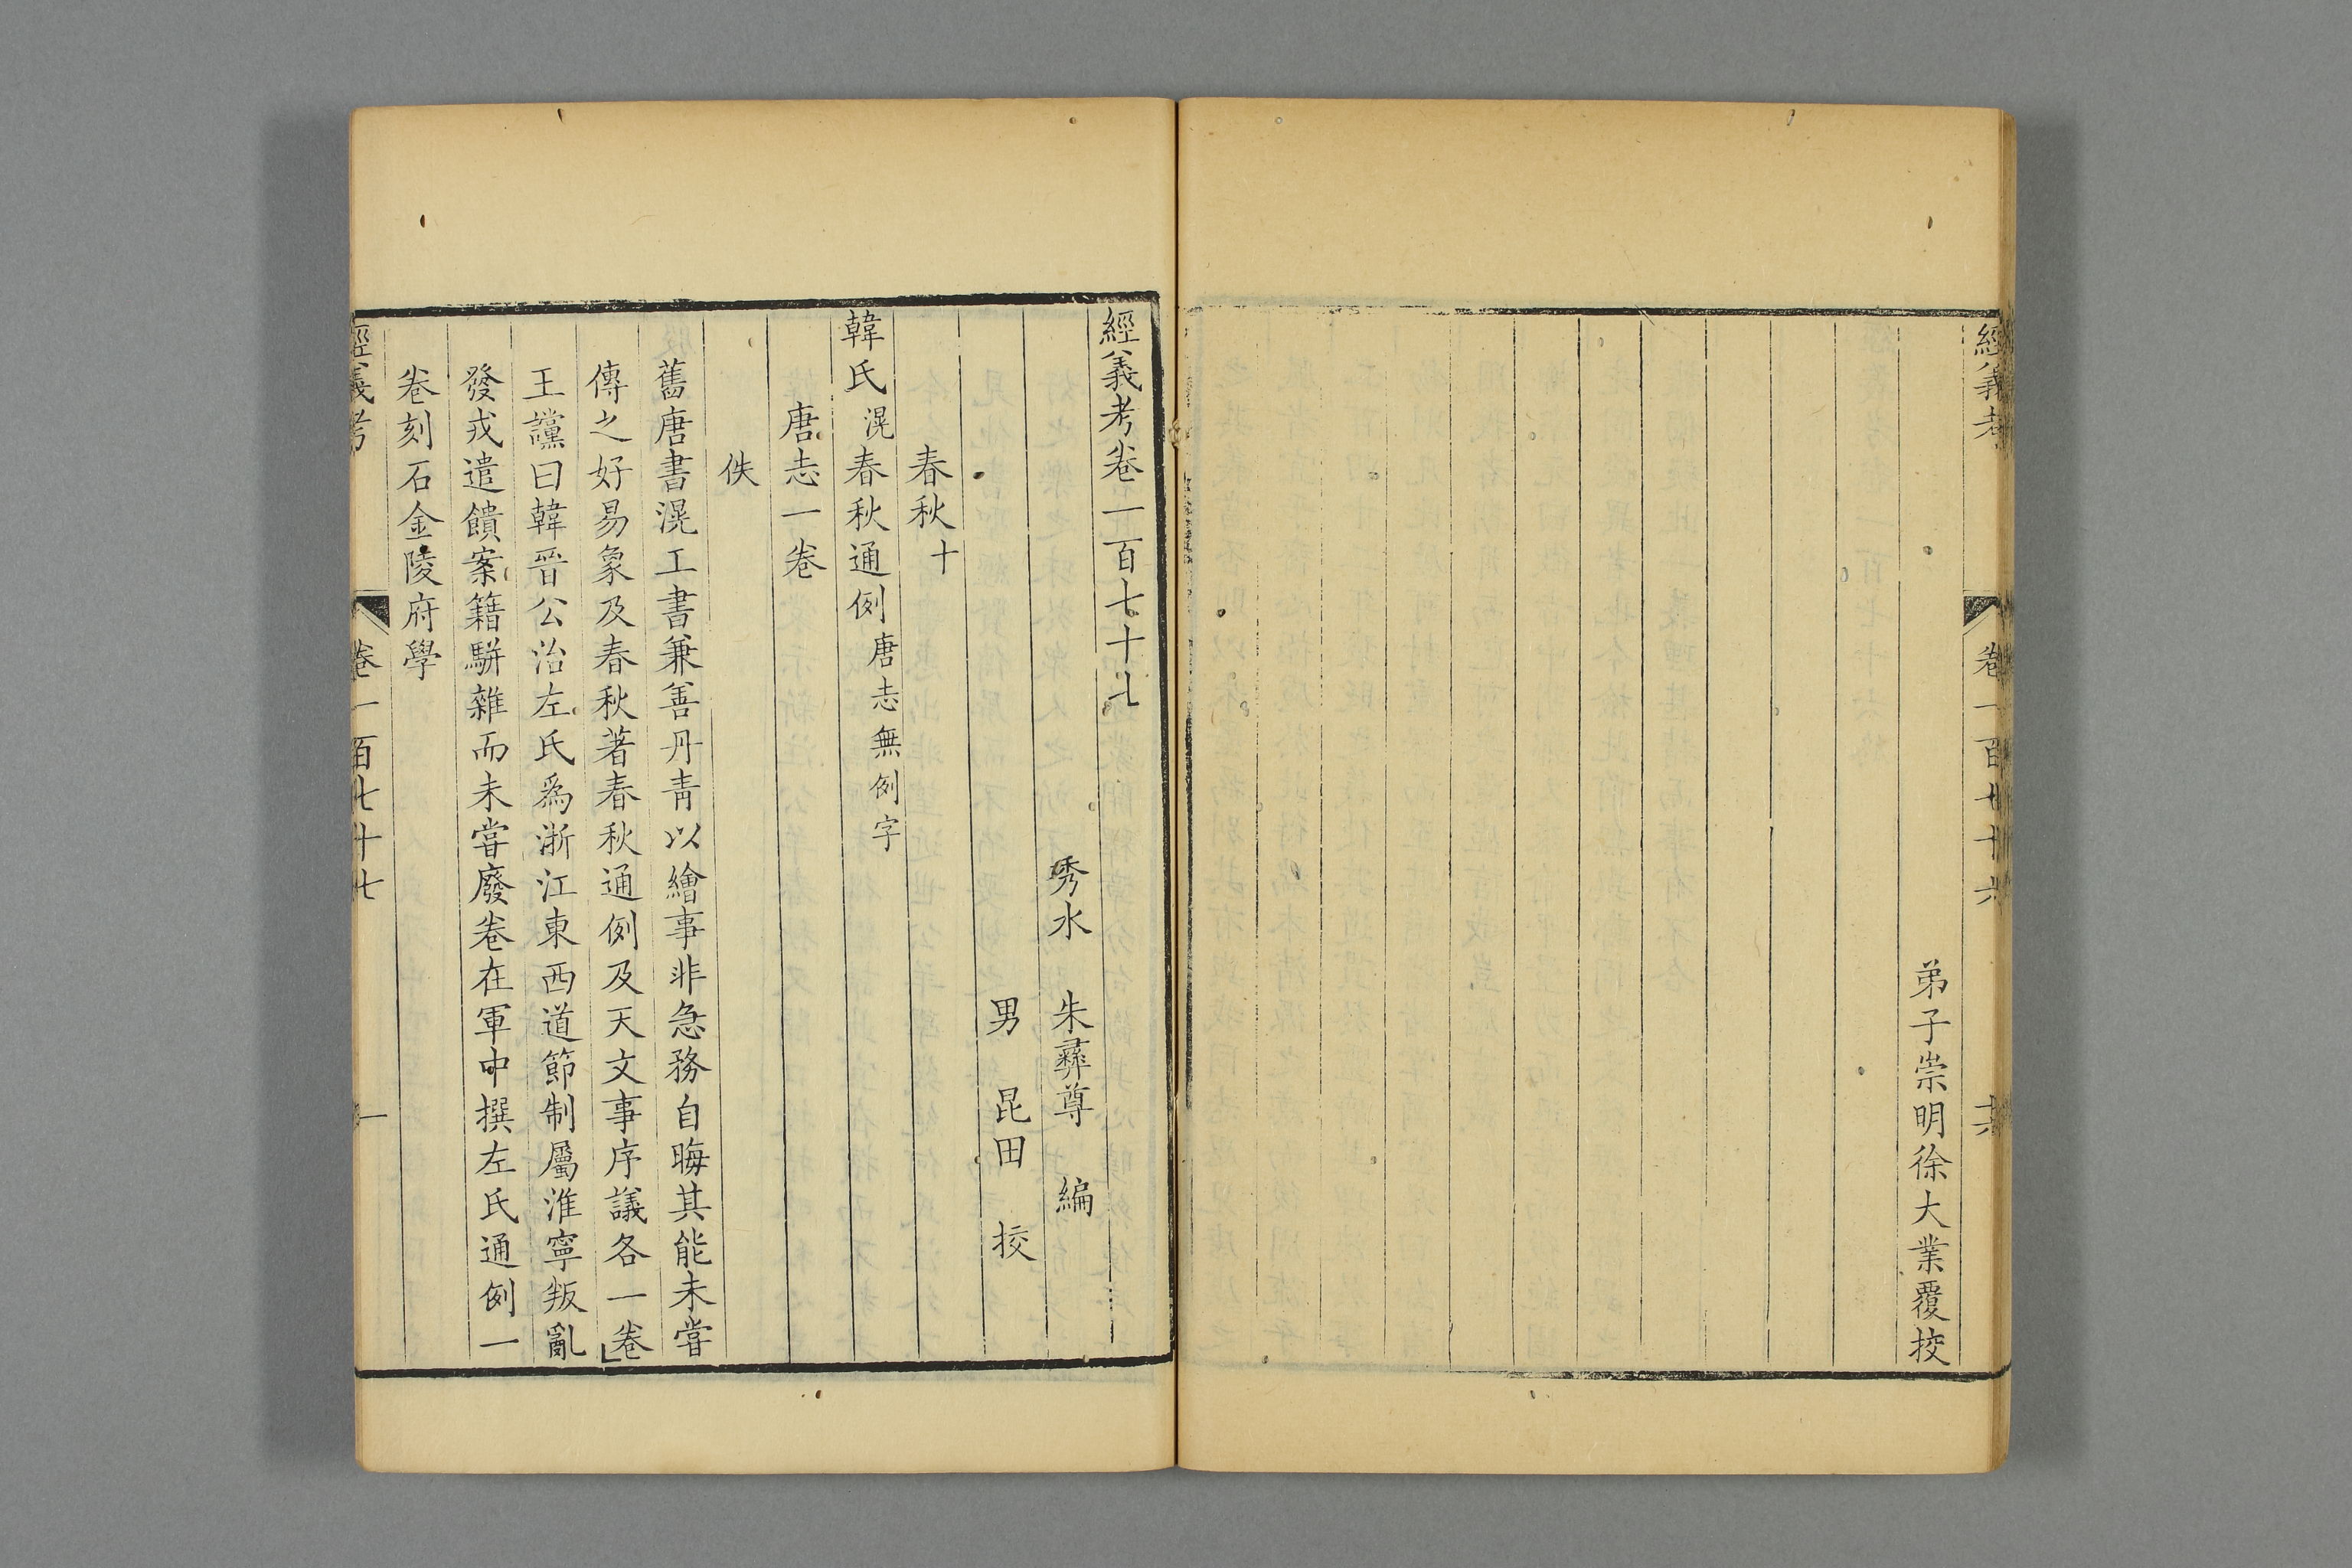 經義考
卷一百七十六
十六
弟子崇明徐大業覆挍
經義考卷一百七十七
秀水 朱彛尊 編
男 昆田 挍
春秋十
韓氏滉春秋通例唐志無例字
唐志一卷
佚
舊唐書滉工書兼善丹青以繪事非急務自晦其能未嘗
傳之好易象及春秋著春秋通例及天文事序議各一卷
王讜曰韓晉公治左氏爲浙江東西道節制屬淮寧叛亂
發戎遣饋案籍駢雜而未嘗廢卷在軍中撰左氏通例一
卷刻石金陵府學
經義考
卷一百七十七
一